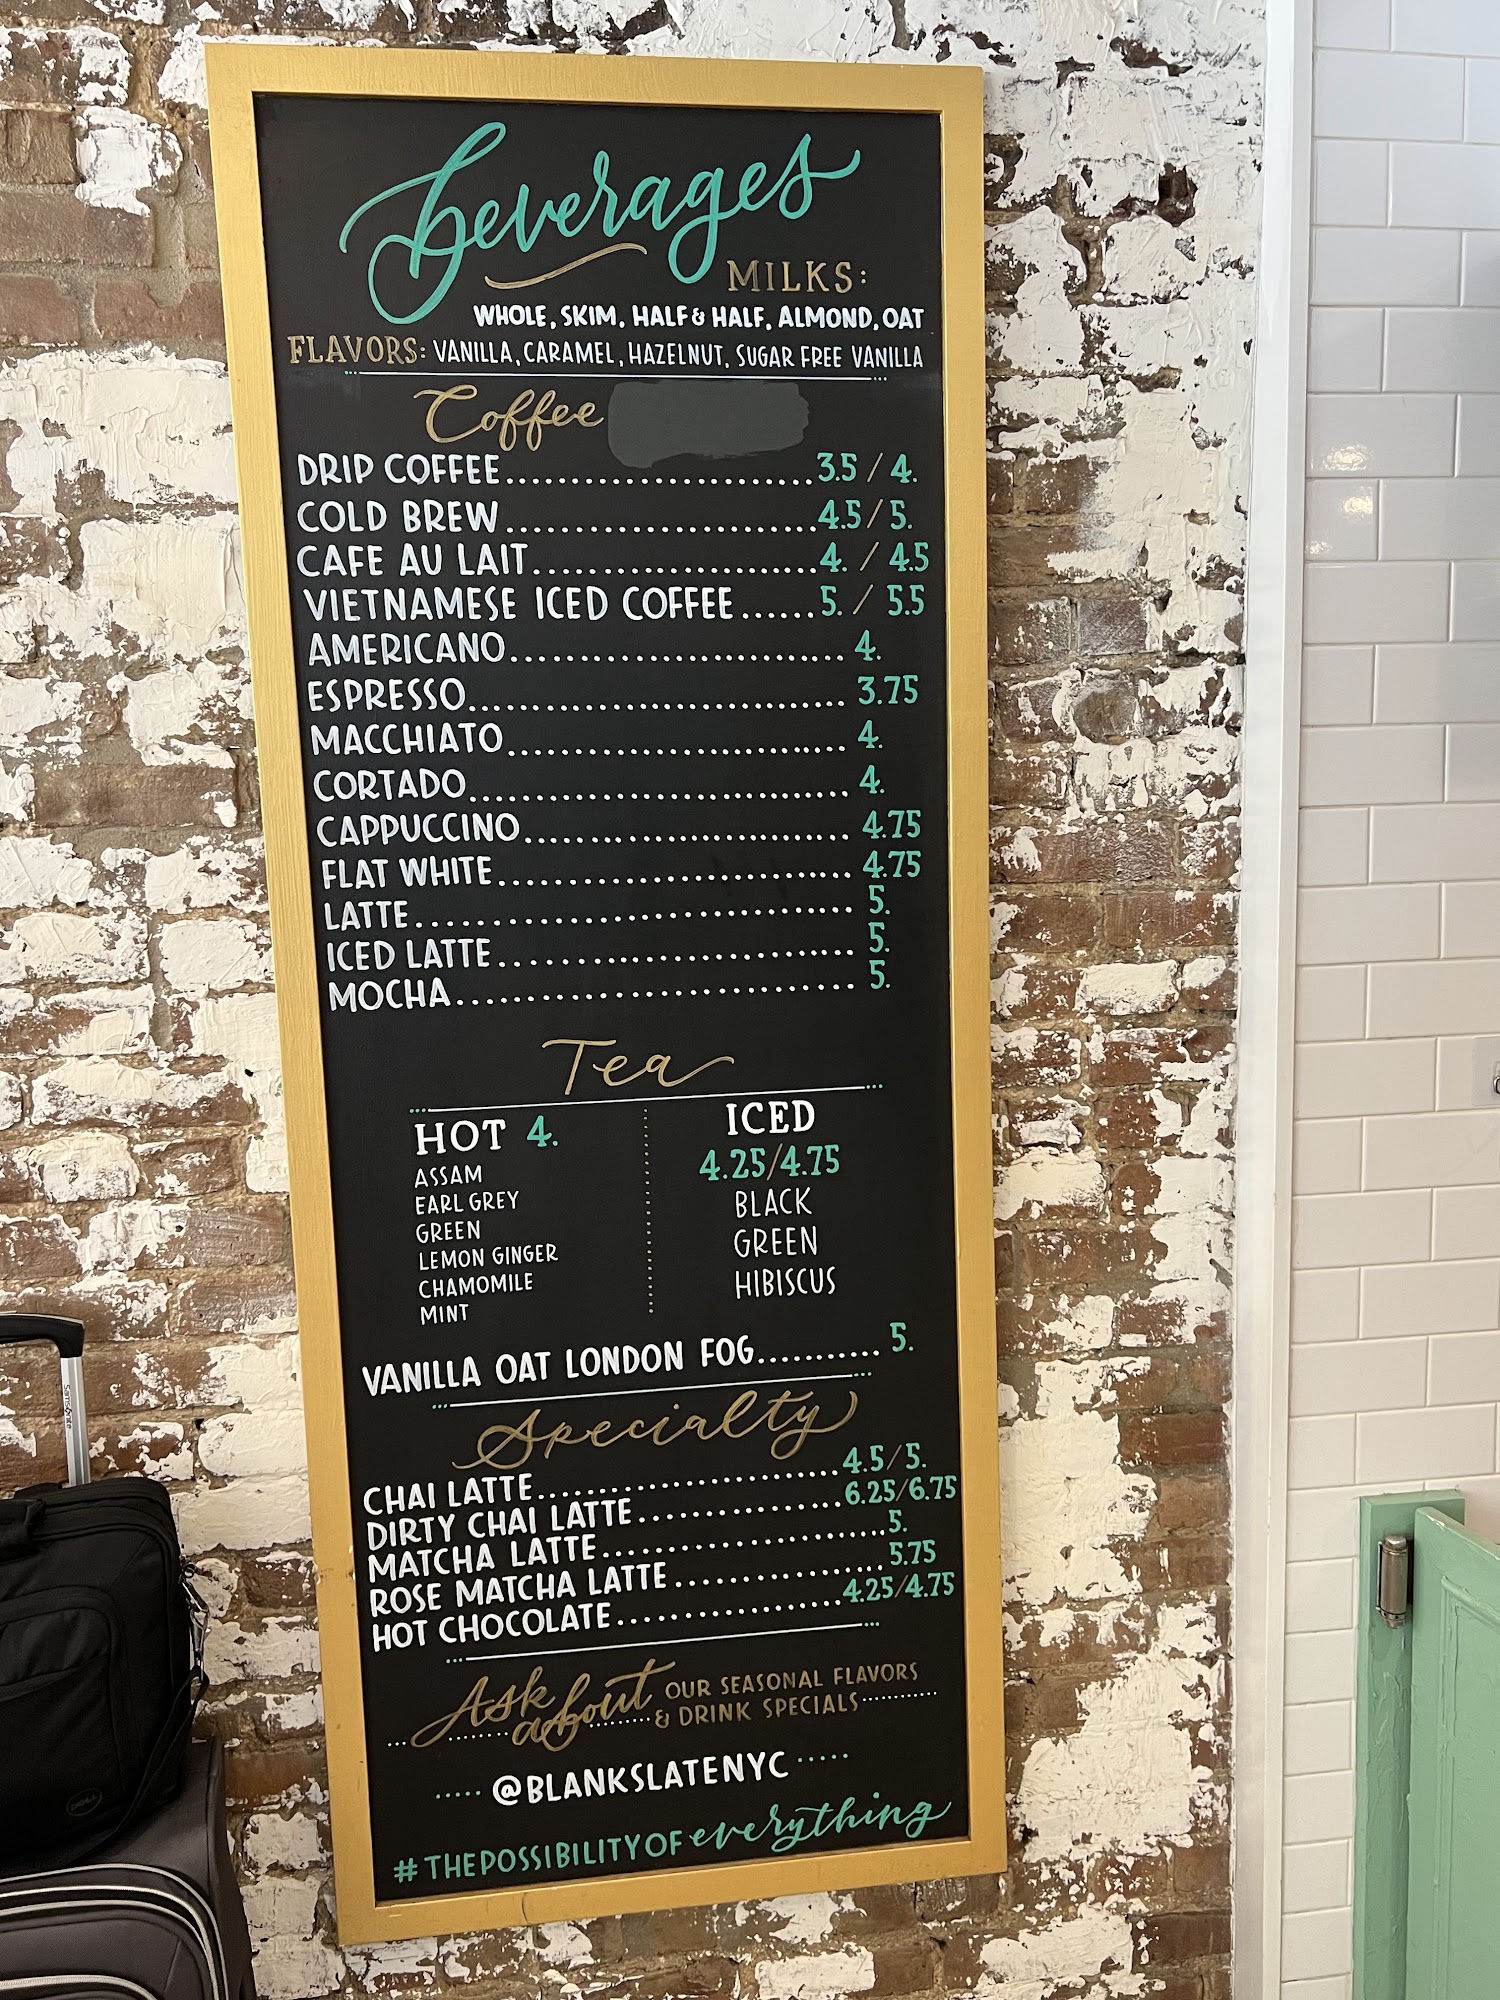 beverages
MILKS:
WHOLE, SKIM, HALF & HALF, ALMOND, OAT
FLAVORS: VANILLA, CARAMEL, HAZELNUT, SUGAR FREE VANILLA
Coffee
DRIP COFFEE 3.5 / 4.
COLD BREW 4.5 / 5.
CAFE AU LAIT 4. / 4.5
VIETNAMESE ICED COFFEE 5. / 5.5
AMERICANO 4.
ESPRESSO 3.75
MACCHIATO 4.
CORTADO 4.
CAPPUCCINO 4.75
FLAT WHITE 4.75
LATTE 5.
ICED LATTE 5.
MOCHA 5.
Tea
HOT 4.
ASSAM
EARL GREY
GREEN
LEMON GINGER
CHAMOMILE
MINT
ICED
4.25/4.75
BLACK
GREEN
HIBISCUS
VANILLA OAT LONDON FOG 5.
Specialty
CHAI LATTE 4.5/5.
DIRTY CHAI LATTE 6.25/6.75
MATCHA LATTE 5.
ROSE MATCHA LATTE 5.75
HOT CHOCOLATE 4.25/4.75
Ask about OUR SEASONAL FLAVORS
& DRINK SPECIALS
@BLANKSLATENYC
#THEPOSSIBILITYOFeverything
Samsonite
DELL